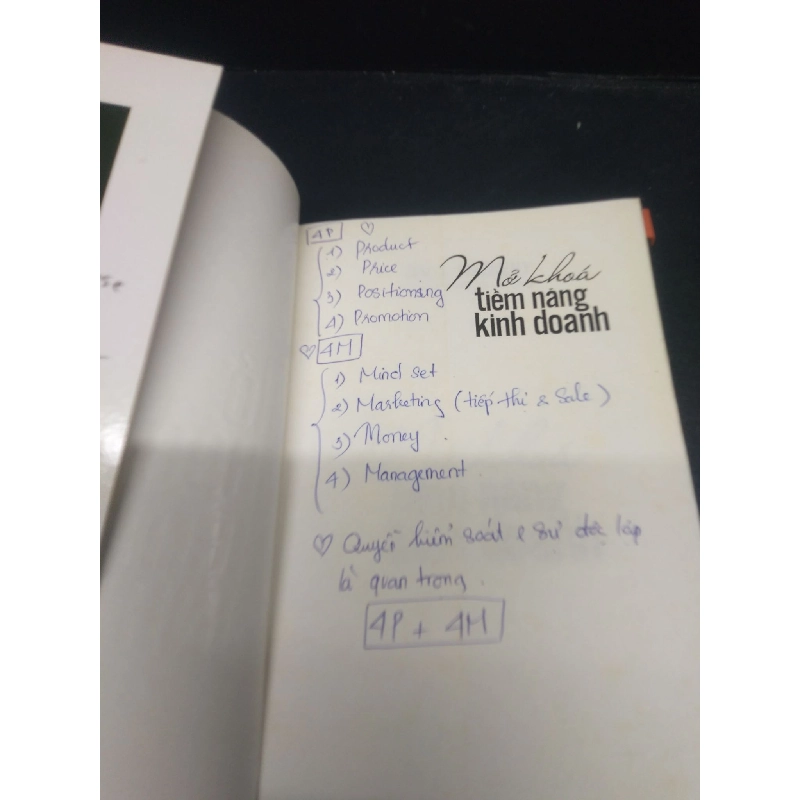 4P ♡
1) Product
2) Price
3) Positionsing
4) Promotion
Mở khoá
tiềm năng
kinh doanh
♡ 4M
1) Mind set
2) Marketing (tiếp thị & Sale)
3) Money.
4) Management.
♡ Quyền kiểm soát & sự độc lập
là quan trọng.
4P + 4M